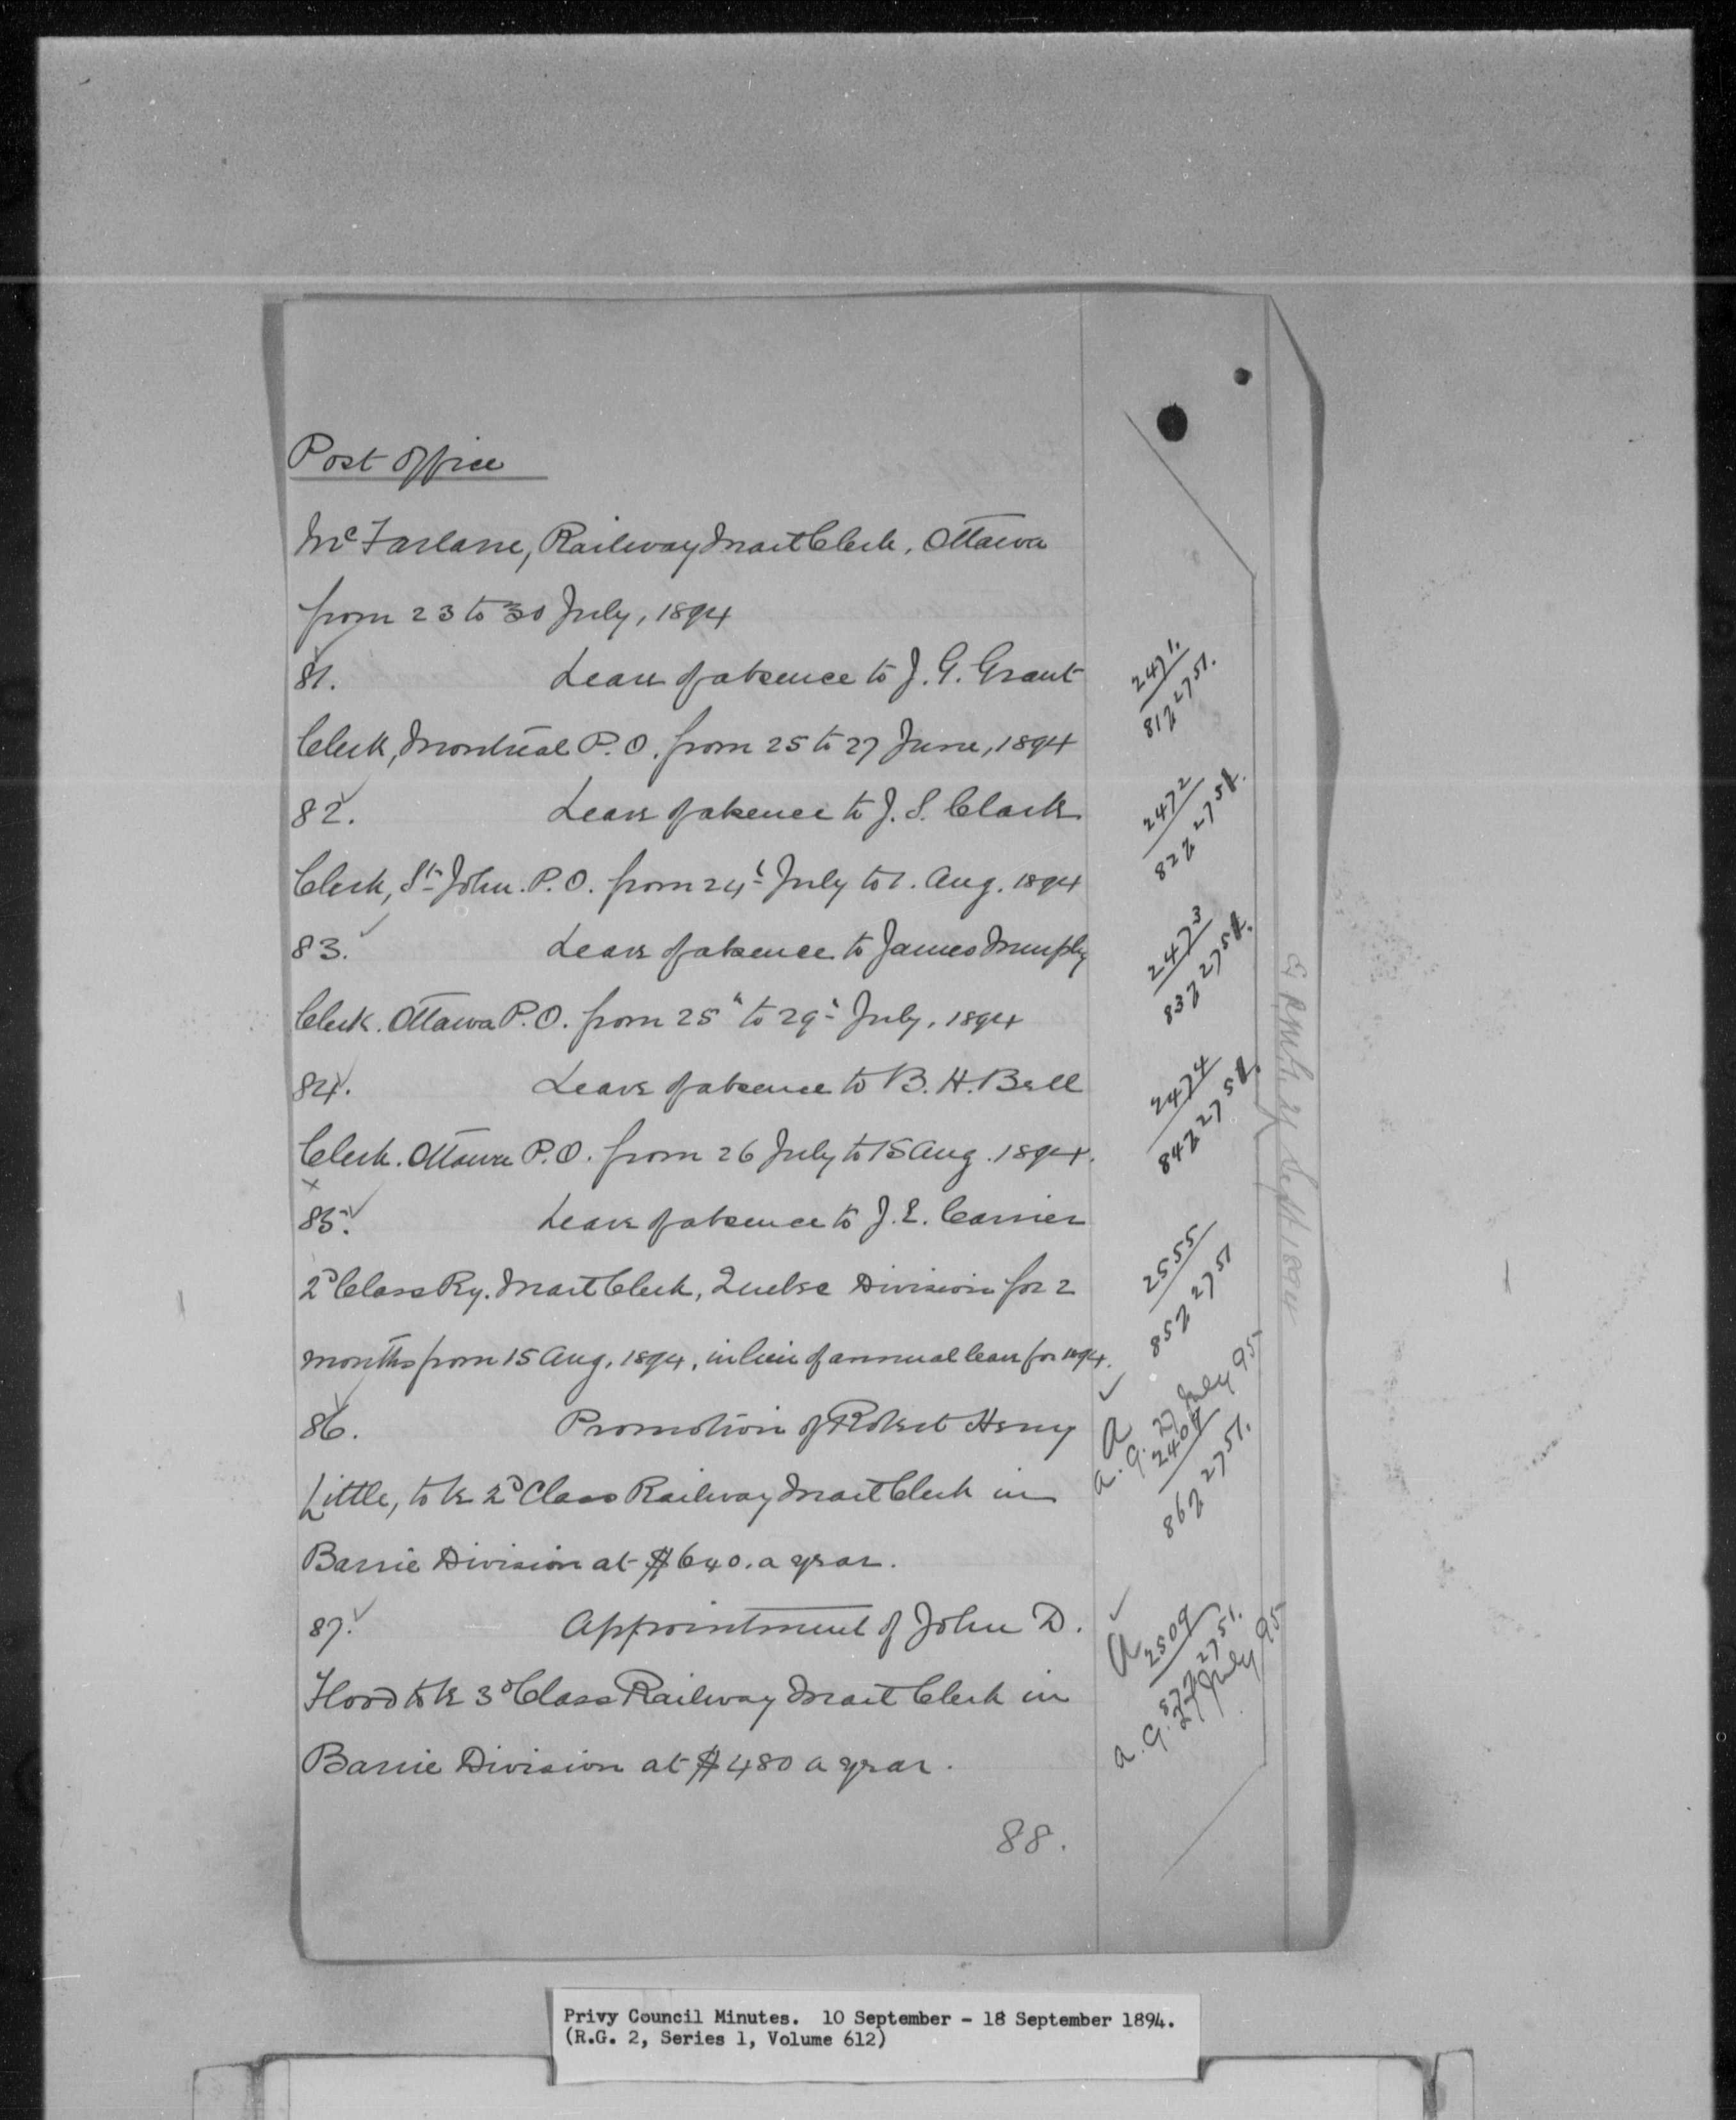 Post Office
McFarlane, Railway Mail Clerk, Ottawa
from 23 to 30 July, 1894
81. Leave of absence to J. G. Grant
2471.
81 g 2751.
Clerk, Montreal P.O. from 25 to 27 June, 1894
82. Leave of absence to J. S. Clark
2472
82 g 2751.
Clerk, St John. P.O. from 24th July to 1. Aug. 1894
83. Leave of absence to James Murphy
2473
83 g 2751.
Clerk. Ottawa P.O. from 25th to 29th July, 1894
84. Leave of absence to B. H. Bell
2474
84 g 2751.
Clerk. Ottawa P.O. from 26 July to 15 Aug. 1894.
x
85. Leave of absence to J. E. Carrier
2555
85 g 2751
2d Class Ry. Mail Clerk, Quebec Division for 2
months from 15 Aug. 1894, in lieu of annual leave for 1894.
86. Promotion of Robert Henry
a
a. g. 27 July 95
86 g 2751.
Little, to be 2d Class Railway Mail Clerk in
Barrie Division at $640. a year.
87. Appointment of John D.
a
2509
87 g 2751.
a. g. 27 July 95
Flood to be 3d Class Railway Mail Clerk in
Barrie Division at $480 a year.
88.
Sept 1894
Privy Council Minutes. 10 September - 18 September 1894.
(R.G. 2, Series 1, Volume 612)